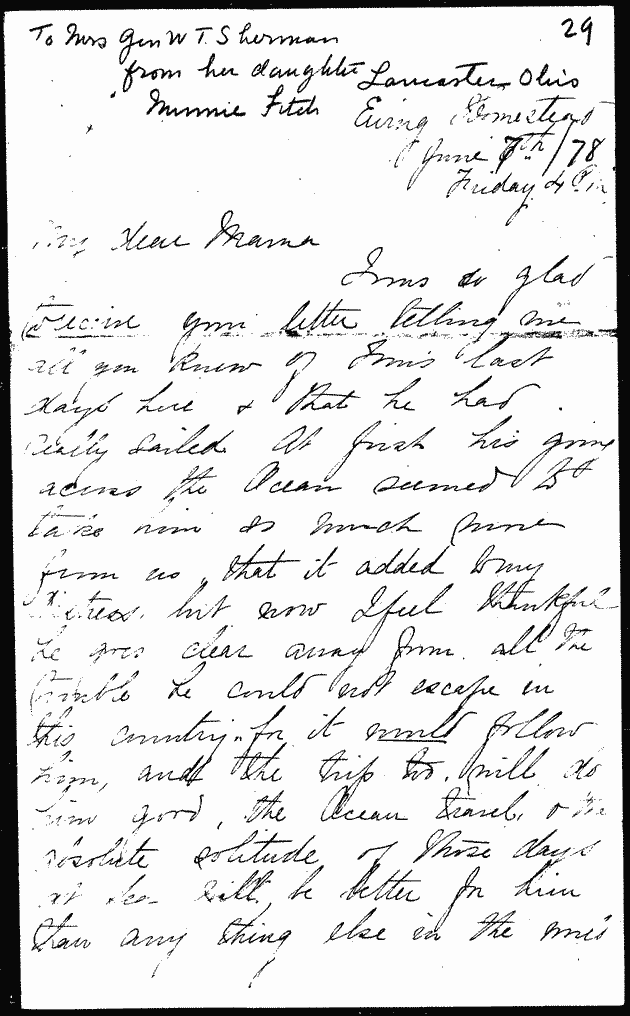 29
To Mrs Gen W T. Sherman
from her daughter
Minnie Fitch
Lancaster Ohio
Ewing Homestead
June 7th/78
Friday 4 P.M.
My dear Mama
I was so glad
to receive your letter telling me
all you knew of Tom's last
days here & that he had
really sailed. At first his going
across the Ocean seemed to
take him so much more
from us, that it added to my
distress. but now I feel thankful
he goes clear away from all the
trouble he could not escape in
this country. for it would follow
him, and the trip too, will do
him good, the Ocean travel. & the
absolute solitude of those days
at sea will, be better for him
than any thing else in the